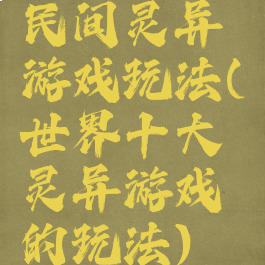 民间灵异
游戏玩法(
世界十大
灵异游戏
的玩法)